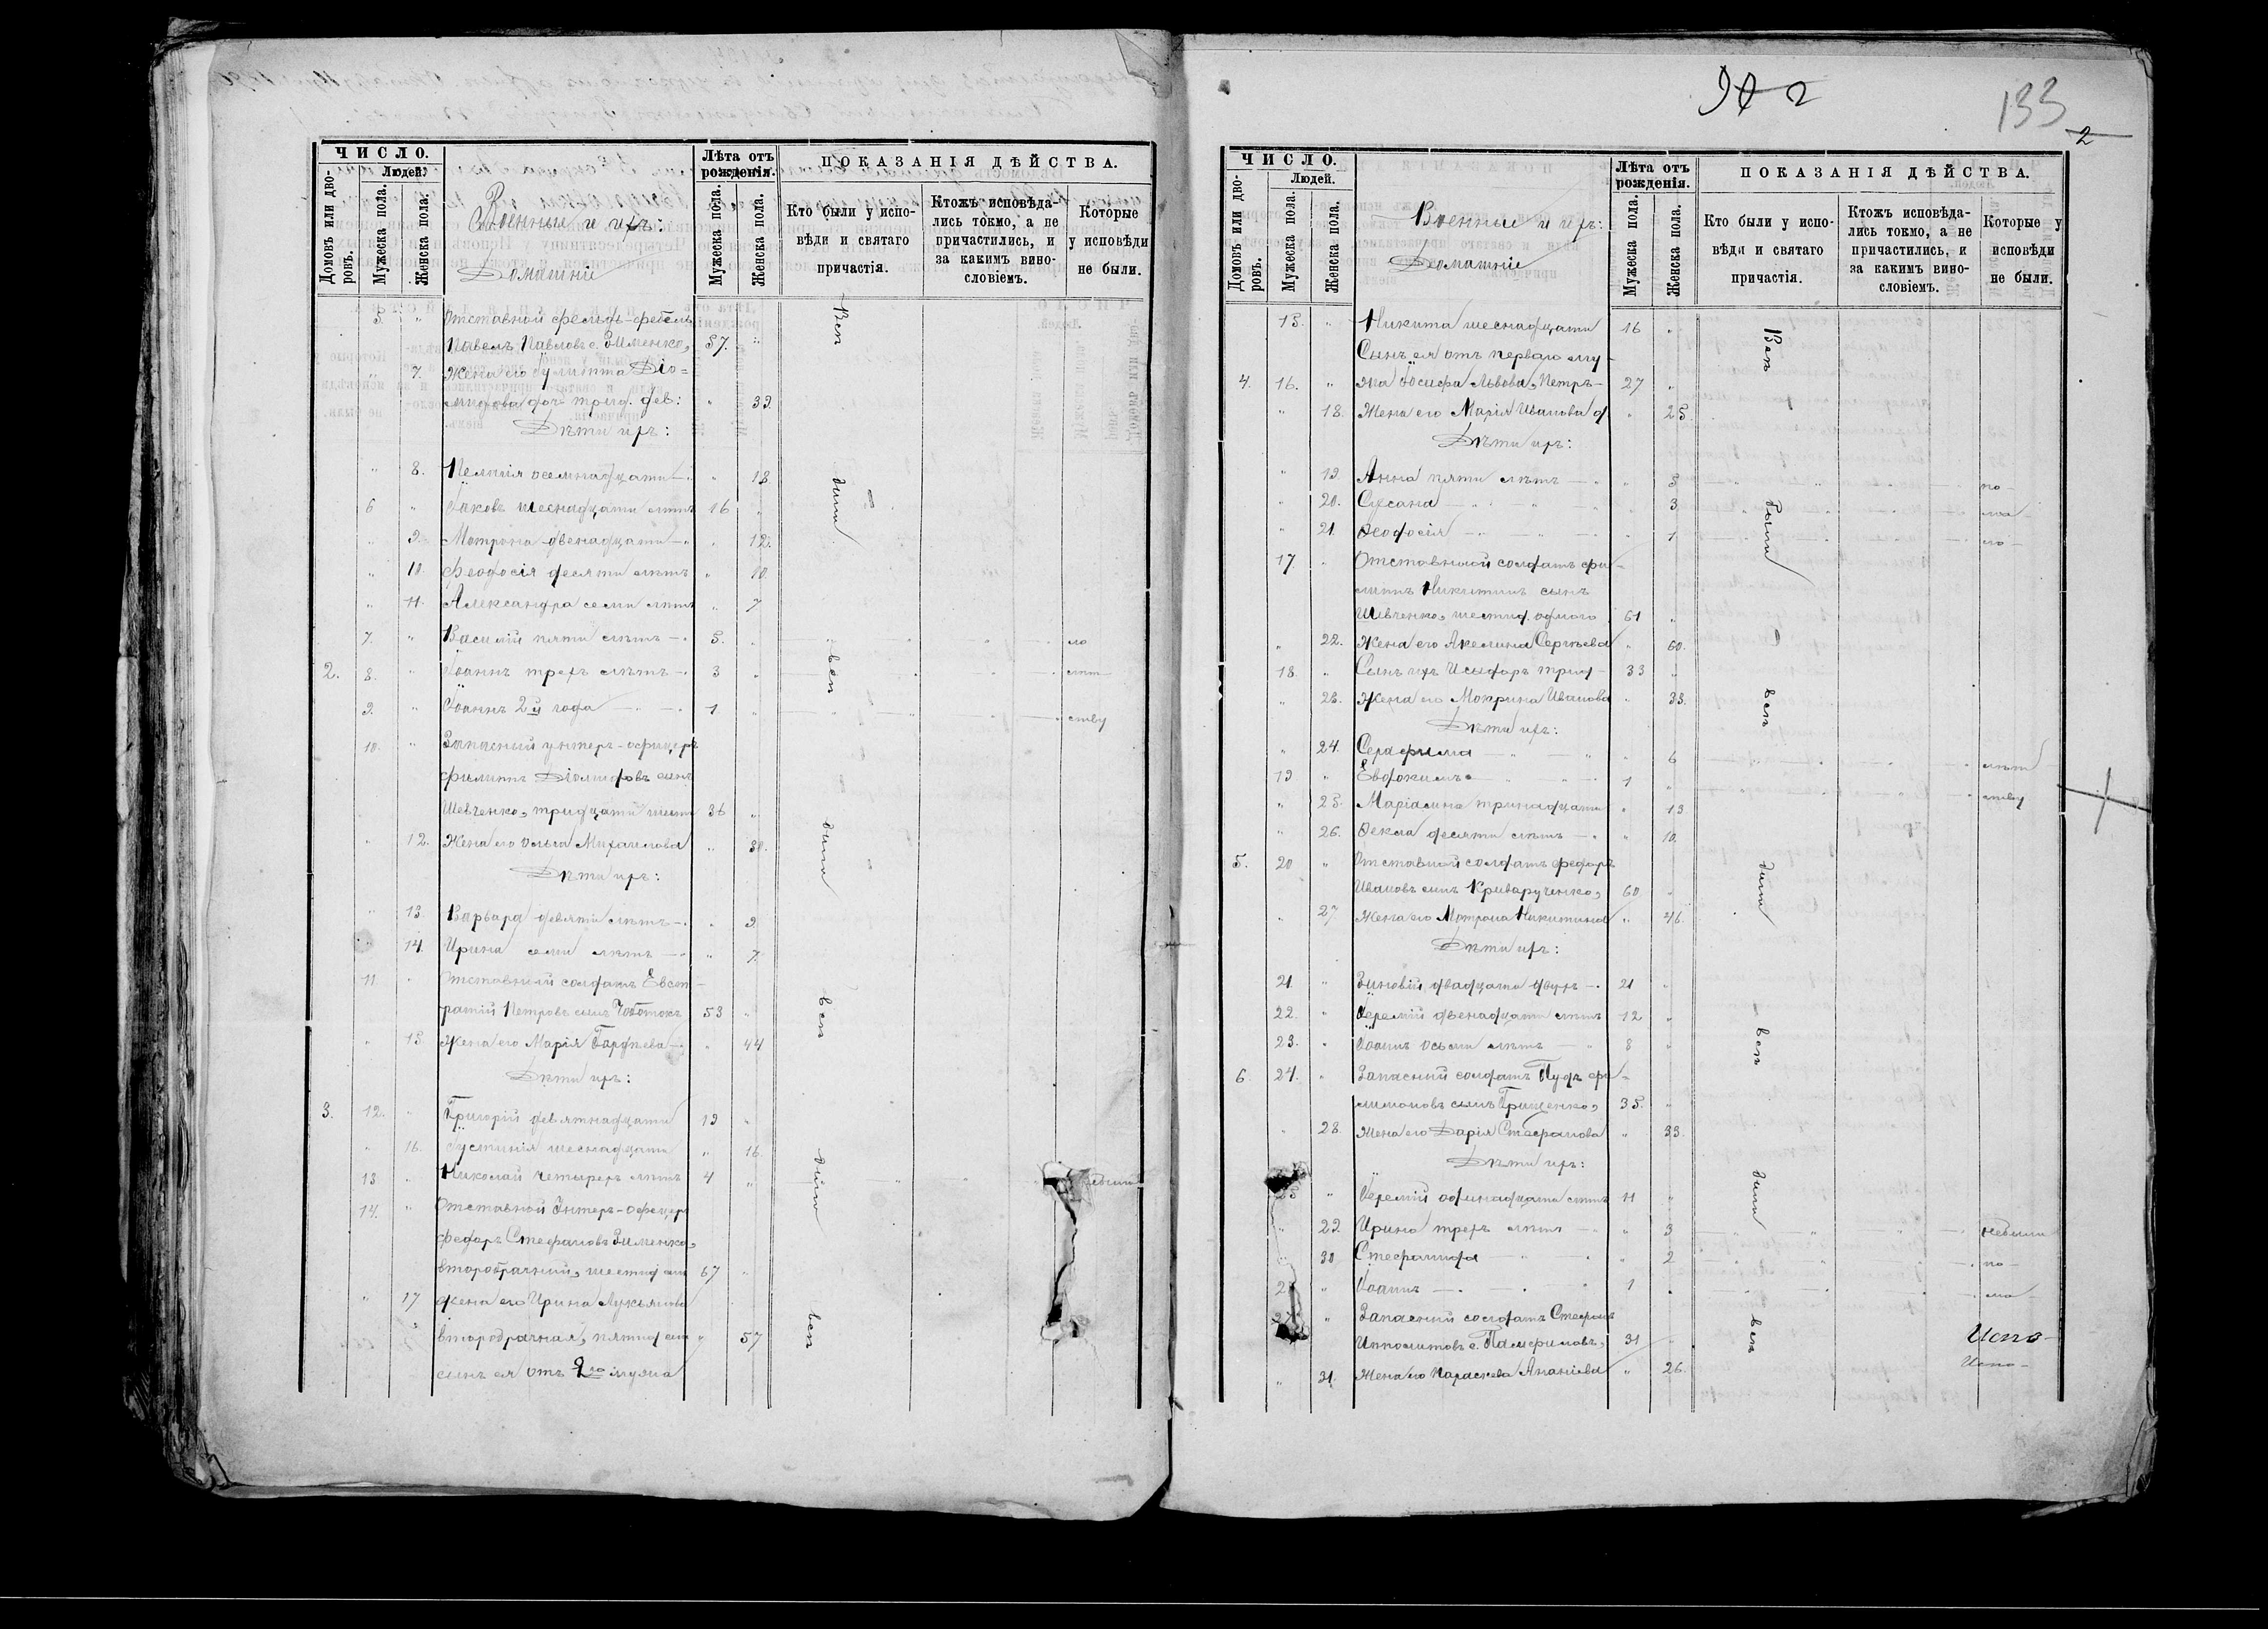 ЧИСЛО.
Домовъ или дворовъ.
Людей.
Мужеска пола.
Женска пола.
Военные и ихъ:
Домашніе
Лѣта отъ рожденія.
Мужеска пола.
Женска пола.
ПОКАЗАНІЯ ДѢЙСТВА.
Кто были у исповѣди и святаго причастія.
Ктожъ исповѣдались токмо, а не причастились, и за какимъ винословіемъ.
Которые у исповѣди не были.
5. " Отставной фельдфебель
Павелъ Павловъ с. Зименко, 57. "
" 7. Жена его Іулитта Діо=
мидова доч. трид. дев: " 39.
Дѣти ихъ:
" 8. Пелагія осемнадцати " 18
6 " Іаковъ шеснадцати лѣтъ 16 "
" 9. Мотрона двенадцати " 12.
" 10. Феодосія десяти лѣтъ " 10.
" 11. Александра семи лѣтъ " 7
7. " Василій пяти лѣтъ 5. " ло
2. 8. " Іоаннъ трехъ лѣтъ 3 " лѣт
9. " Іоаннъ 2й года 1. " ству
10. " Запасный унтеръ-офицеръ
Филиппъ Діомидовъ сынъ
Шевченко, тридцати шести 36 "
" 12. Жена его Ольга Михаилова " 30.
Дѣти ихъ:
" 13. Варвара девяти лѣтъ " 9.
" 14. Ирина семи лѣтъ " 7.
11. " Отставной солдатъ Евст
ратій Петровъ сынъ Чоботокъ 53 "
" 15. Жена его Марія Гордѣева " 44
Дѣти ихъ:
3. 12. " Григорій девятнадцати 19 "
" 16. Іустинія шеснадцати " 16.
13 " Николай четырехъ лѣтъ 4 "
14. " Отставной Унтеръ-офицеръ
Федоръ Стефановъ Зименко,
второбрачный, шестид. 67 "
" 17 Жена его Ирина Лукьянова
второбрачная, пятид. " 57
сынъ ея отъ 1го мужа
Всѣ
были
всѣ
были
всѣ
были
всѣ
902
133
2
ЧИСЛО.
Домовъ или дворовъ.
Людей.
Мужеска пола.
Женска пола.
Военные и ихъ:
Домашніе
Лѣта отъ рожденія.
Мужеска пола.
Женска пола.
ПОКАЗАНІЯ ДѢЙСТВА.
Кто были у исповѣди и святаго причастія.
Ктожъ исповѣдались токмо, а не причастились, и за какимъ винословіемъ.
Которые у исповѣди не были.
15. " Никита шеснадцати 16 "
Сынъ ея отъ перваго му-
4. 16. " жа Іосифа Львова, Петръ 27 "
" 18. Жена его Марія Иванова " 25.
Дѣти ихъ:
" 19. Анна пяти лѣтъ " 5 по
" 20. Сусана " 3 ма
" 21. Феодосія " 1 ло
17. " Отставной солдатъ Фи-
липъ Никитинъ сынъ
Шевченко, шестид. одного 61 "
" 22. Жена его Акелина Сергѣева " 60.
18. " Сынъ ихъ Исидоръ трид 33 "
" 23. Жена его Мокрина Иванова " 33.
Дѣти ихъ:
" 24. Серафима " 6 лѣт
19 " Евдокимъ 1 " ству
" 25. Маріамна тринадцати " 13
" 26. Фекла десяти лѣтъ " 10.
5. 20 " Отставной солдатъ Федоръ
Ивановъ сынъ Криворученко, 60 "
" 27. Жена его Мотрона Никитина " 46.
Дѣти ихъ:
21 " Зиновій двадцати 21 "
22. " Іеремій двенадцати лѣтъ 12 "
23. " Іоаннъ осьми лѣтъ 8 "
6. 24. " Запасный солдатъ Пудъ Фи-
лимоновъ сынъ Грищенко, 35. "
" 28. Жена его Дарія Стефанова " 33.
Дѣти ихъ:
25 " Іеремій одинадцати лѣтъ 11 "
" 29. Ирина трехъ лѣтъ " 3 небыли
" 30 Стефанида " 2 по
" Іоаннъ 1 " ма
" Запасный солдатъ Стефанъ
Ипполитовъ с. Памфиловъ, 31 "
" 31. Жена его Параскева Ананіева " 26.
Всѣ
были
всѣ
были
всѣ
были
всѣ
Испо-
Испо-